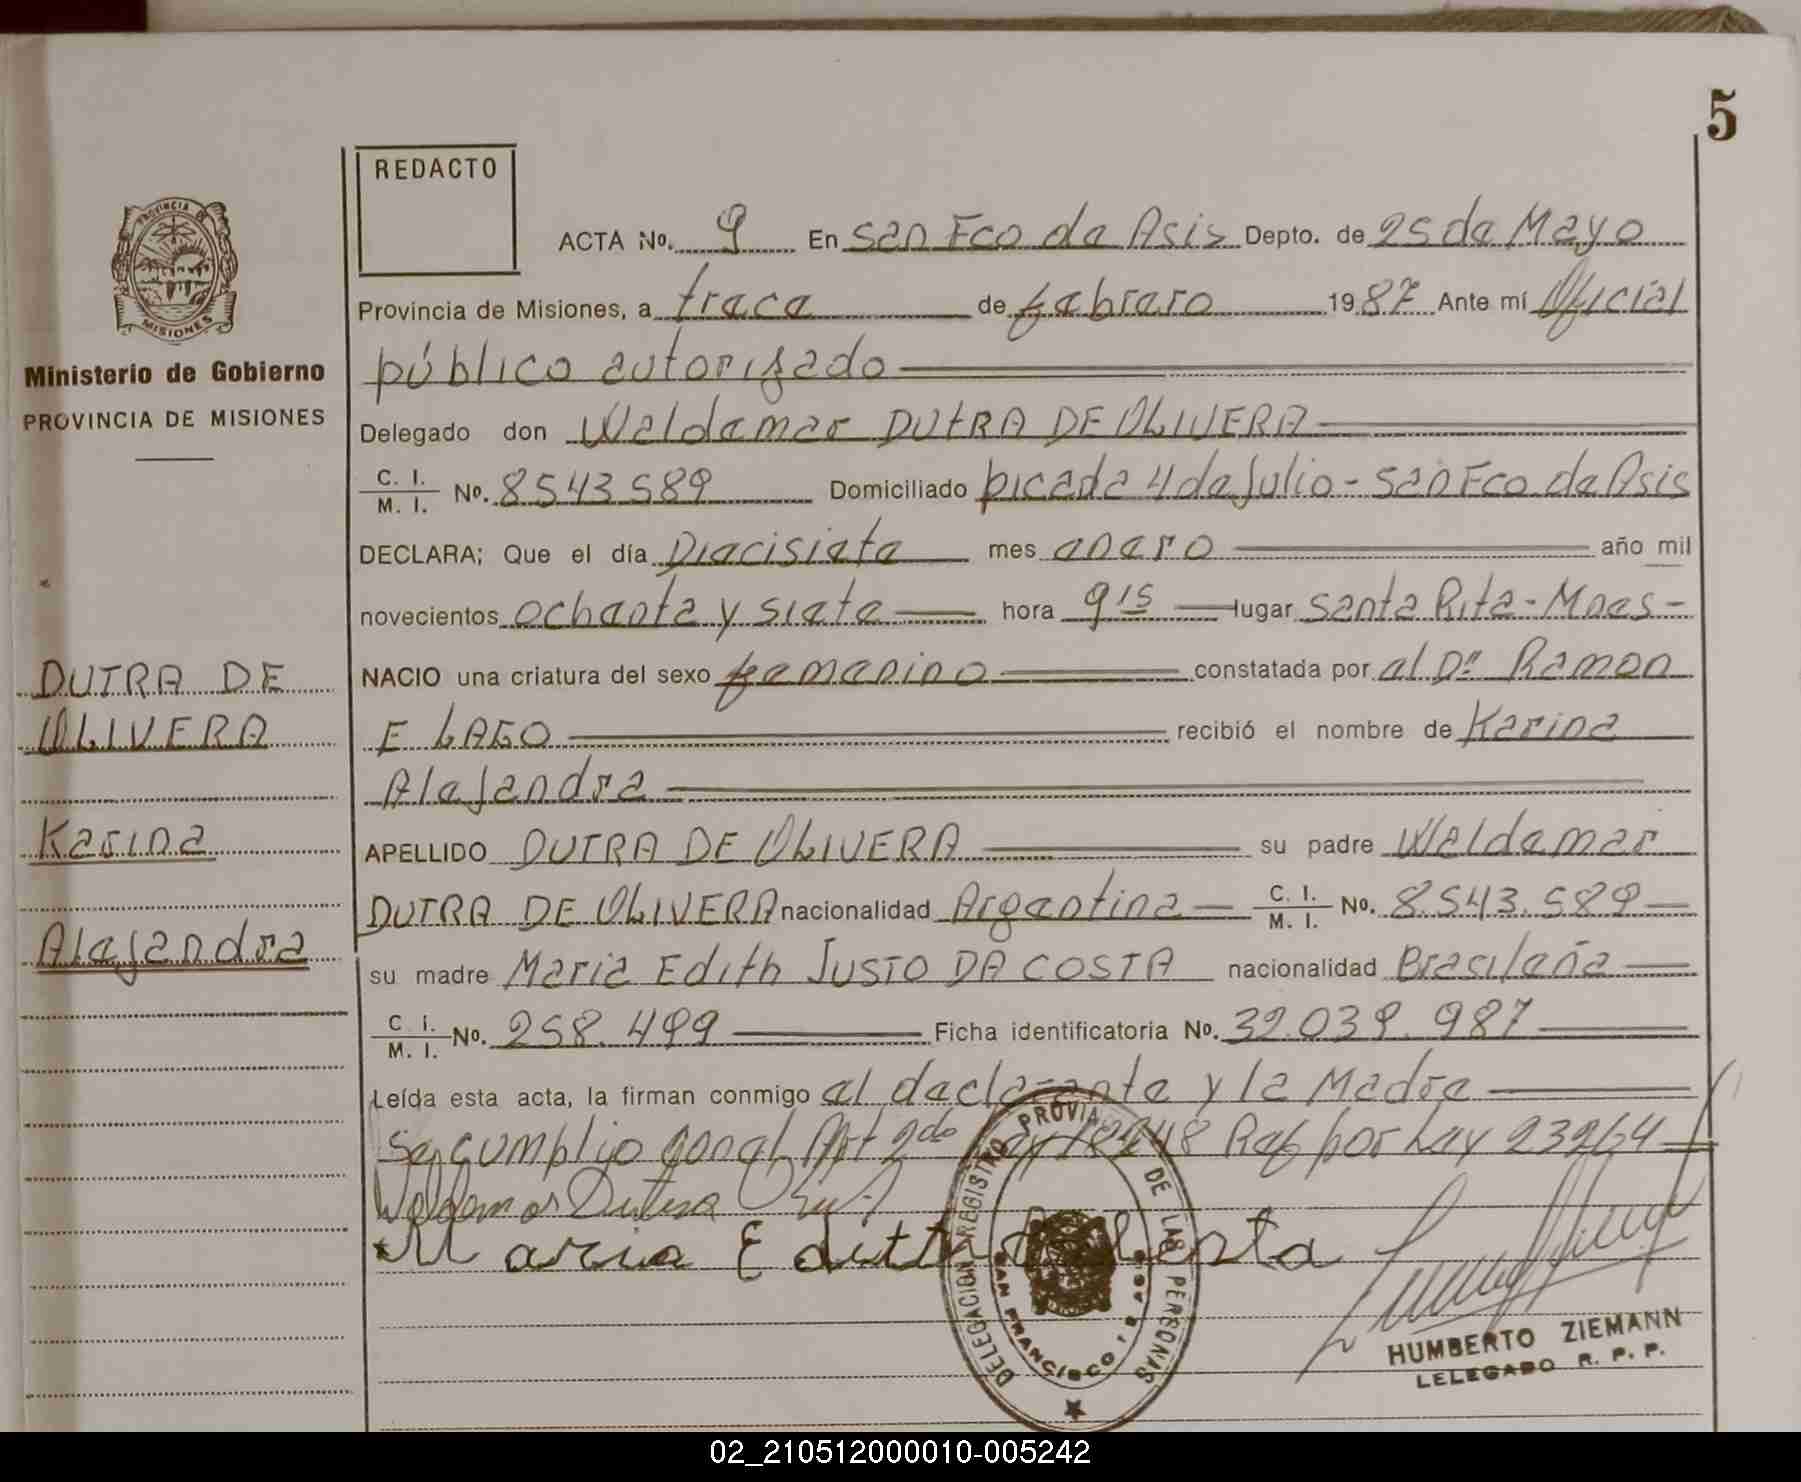 5
REDACTO
ACTA No. 9 En San Fco de Asis Depto. de 25 de Mayo
Provincia de Misiones, a trece de febrero 1987 Ante mí Oficial
público autorizado
Ministerio de Gobierno
PROVINCIA DE MISIONES
Delegado don Waldemar DUTRA DE OLIVERA
C. I. / M. I. No. 8543589 Domiciliado picada 4 de Julio - San Fco. de Asis
DECLARA; Que el día Diecisiete mes enero año mil
novecientos ochenta y siete hora 9 15 lugar Santa Rita - Mnes -
DUTRA DE
OLIVERA
Karina
Alejandra
NACIO una criatura del sexo femenino constatada por el Dr. Ramon
E LAGO recibió el nombre de Karina
Alejandra
APELLIDO DUTRA DE OLIVERA su padre Waldemar
DUTRA DE OLIVERA nacionalidad Argentina C. I. / M. I. No. 8.543.589
su madre Maria Edith JUSTO DA COSTA nacionalidad Brasileña
C. I. / M. I. No. 258.499 Ficha identificatoria No. 32.039.987
Leída esta acta, la firman conmigo el declarante y la Madre
Se cumplio con el Art 2do Ley 18248 Ref por Ley 23264
Maria Edith
DELEGACION REGISTRO PROVIA DE LAS PERSONAS
SAN FRANCISCO
HUMBERTO ZIEMANN
LELEGADO R. P. P.
PROVINCIA DE
MISIONES
02_210512000010-005242